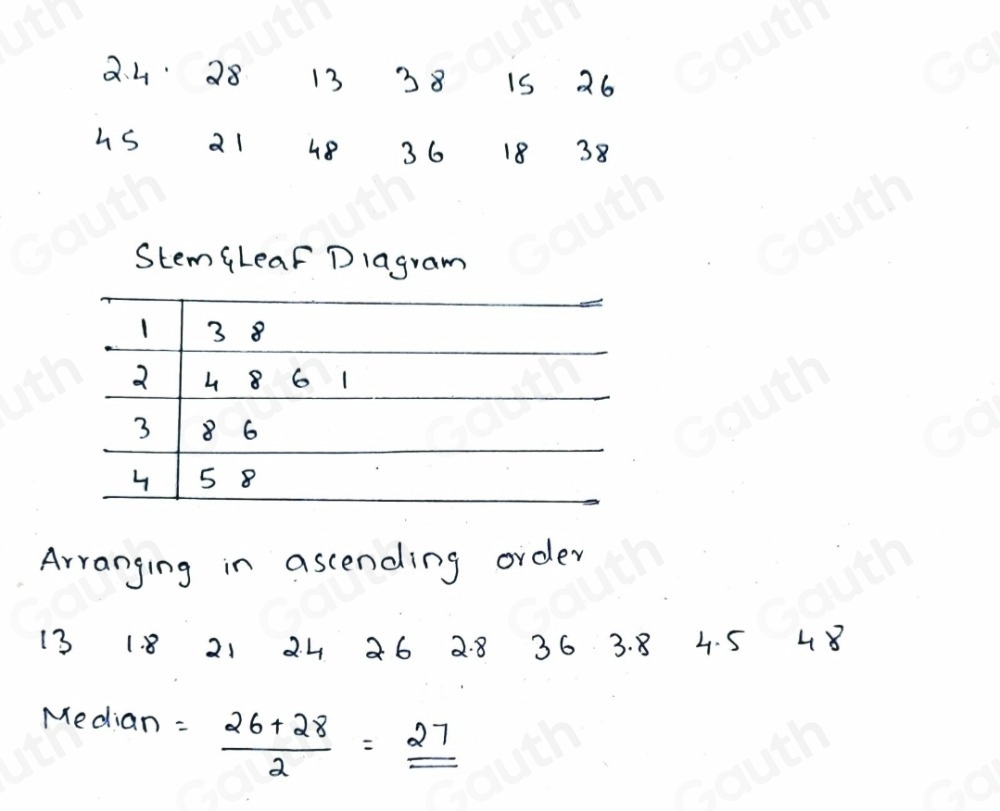 2.4. 28 13 38 15 26
45 21 48 36 18 38
Stem & Leaf Diagram
1 | 3 8
2 | 4 8 6 1
3 | 8 6
4 | 5 8
Arranging in ascending order
13 1.8 21 24 26 2.8 36 3.8 4.5 48
Median = (26+28)/2 = 27